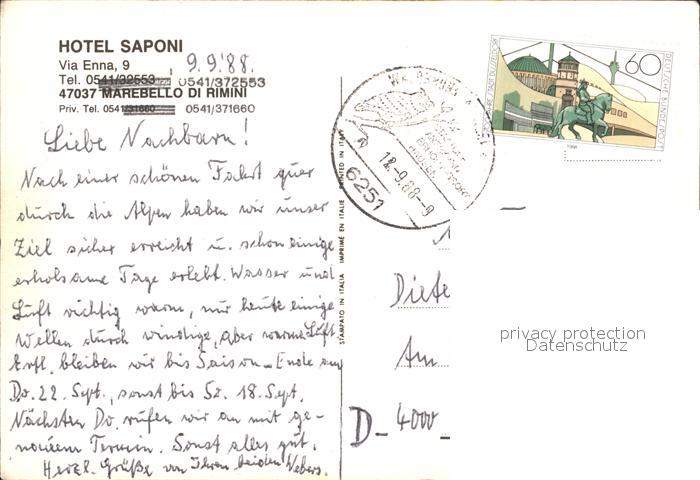 HOTEL SAPONI
Via Enna, 9
9.9.'88.
Tel. 0541/32553 0541/372553
47037 MAREBELLO DI RIMINI
Priv. Tel. 0541/31660 0541/371660
Liebe Nachbarn!
Nach einer schönen Fahrt quer
durch die Alpen haben wir unser
Ziel sicher erreicht u. schon einige
erholsame Tage erlebt. Wasser und
Luft richtig warm, nur heute einige
Wellen durch windige, aber warme Luft
Evtl. bleiben wir bis Saison-Ende am
Do. 22. Sept., sonst bis So. 18. Sept.
Nächsten Do. rufen wir an mit ge-
nauem Termin. Sonst alles gut.
Herzl. Grüße von Ihren beiden Webers.
STAMPATO IN ITALIA IMPRIMÉ EN ITALIE PRINTED IN ITALY
18.-9.88-8
6251
60
DEUTSCHE BUNDESPOST
1988
Diete
Am
D-4000-
privacy protection
Datenschutz